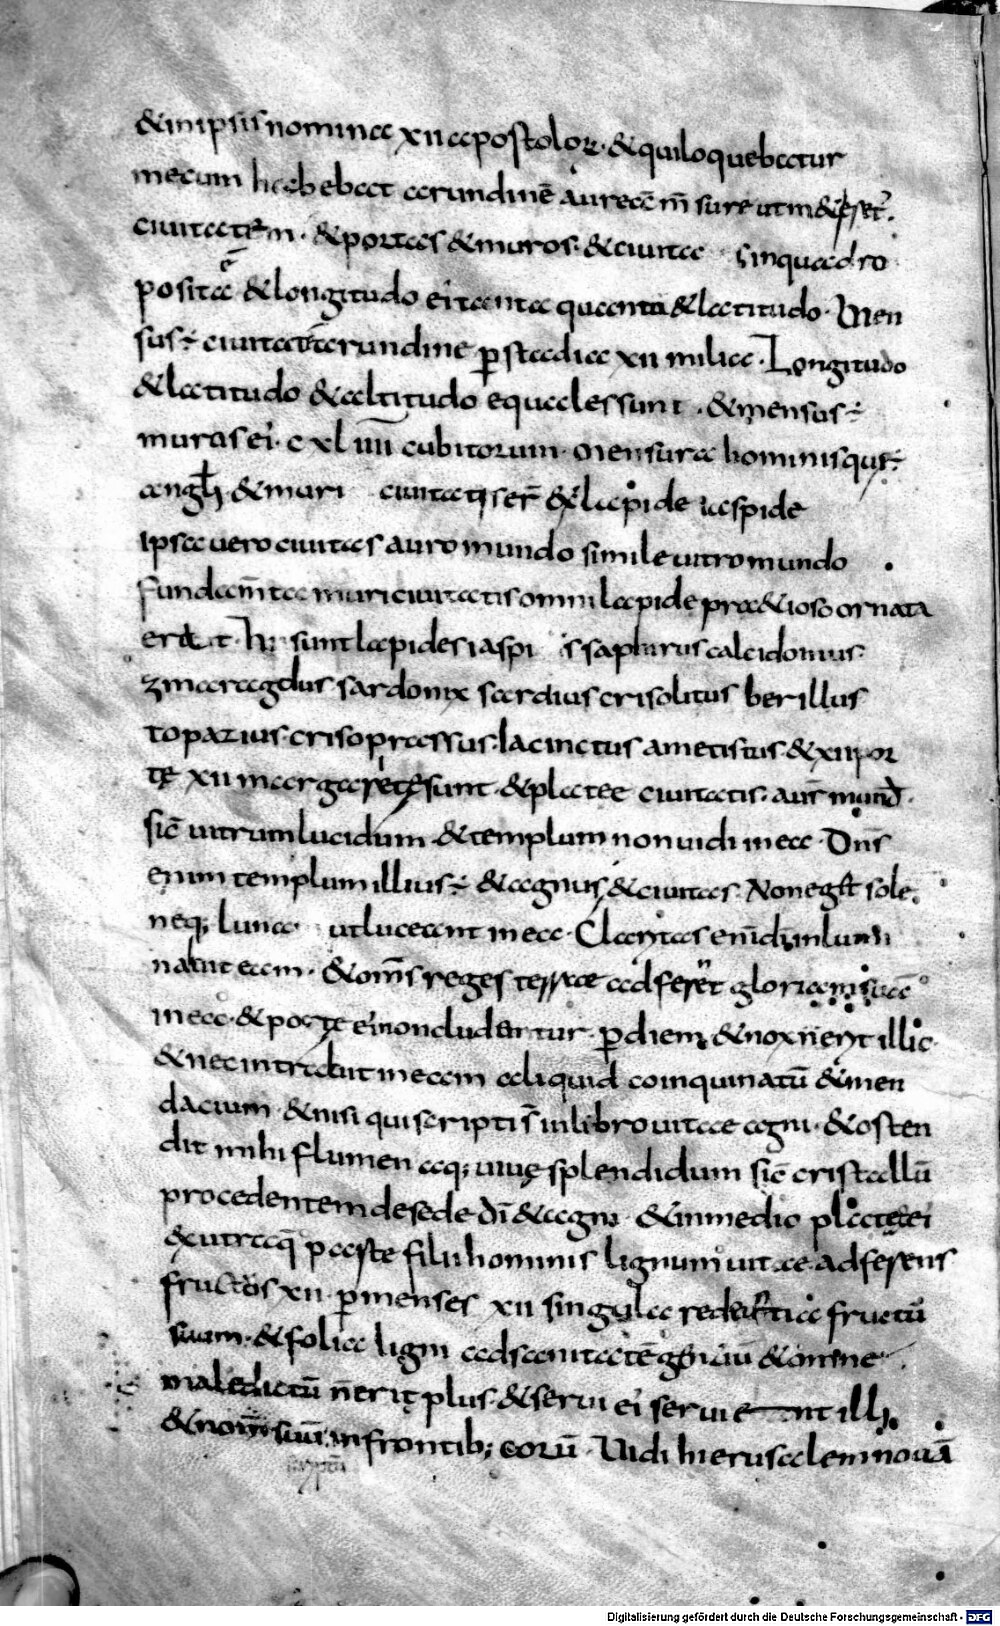 & in ipsis nomina xii apostolor· & qui loquebatur
mecum habebat arundinē aureā m̄sure ut m&
ciuitatem· & portas & muros· & ciuitas in quadro
posita ē & longitudo ei tanta quanta & latitudo· Men
sus ÷ ciuitatē arundine p̱ stadia xii milia· Longitudo
& latitudo & altitudo equales sunt· & mensus ÷
muros ei· cxl iiii cubitorum· mensura hominis que ÷
angli· & muri ciuitatis & lapide iaspide
ipsa uero ciuitas auro mundo simile uitro mundo
fundam̄ta muri ciuitatis omni lapide praetioso ornata
erat· Hi sunt lapides iaspis saphirus calcidonius·
zmaragdus sardonix sardius crisolitus berillus
topazius· crisoprassus· Iacinctus ametistus· & xii por
tę xii margaretę sunt· & platee ciuitatis· aur̄ mund·
sic̄ uitrum lucidum· & templum non uidi in ea· Dn̄s
enim templum illius ÷ & agnus & ciuitas· Non eg& sole
neq; luna· ut luceant in ea· Claritas enī dī inlumi
nabit eam· & om̄s reges terrae adferent gloriam suā
in ea· & porte ei non cludentur· p̱ diem & nox n̄ erit illic·
& nec intrabit in eam aliquid coinquinatū & men
dacium· & nisi qui scripti s̄ in libro uitae agni· & osten
dit mihi flumen aq; uiuę splendidum sic̄ cristallū
procedentem de sede dī & agni· & in medio platee ei
& utraq; parte filii hominis lignum uitae adferens
fructus xii· p̱ menses xii singula reddentia fructū
suum· & folia ligni ad sanitatē gentiū & omne
maledictū n̄ erit plus· & serui ei seruient illi·
& nom̄ suū in frontib; eorū· Uidi hierusalem nouā
Digitalisierung gefördert durch die Deutsche Forschungsgemeinschaft · DFG